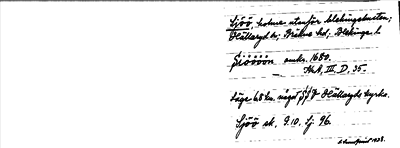 Sjöö, holme utanför Blekingekusten;
Hällaryds sn, Bräkne hd, Blekinge l.
Siöööön omkr. 1680.
KrA, III, D. 35.
Läge 4,8 km. något S/O Hällaryds kyrka.
Sjöö sk. 9.10. Lj 96.